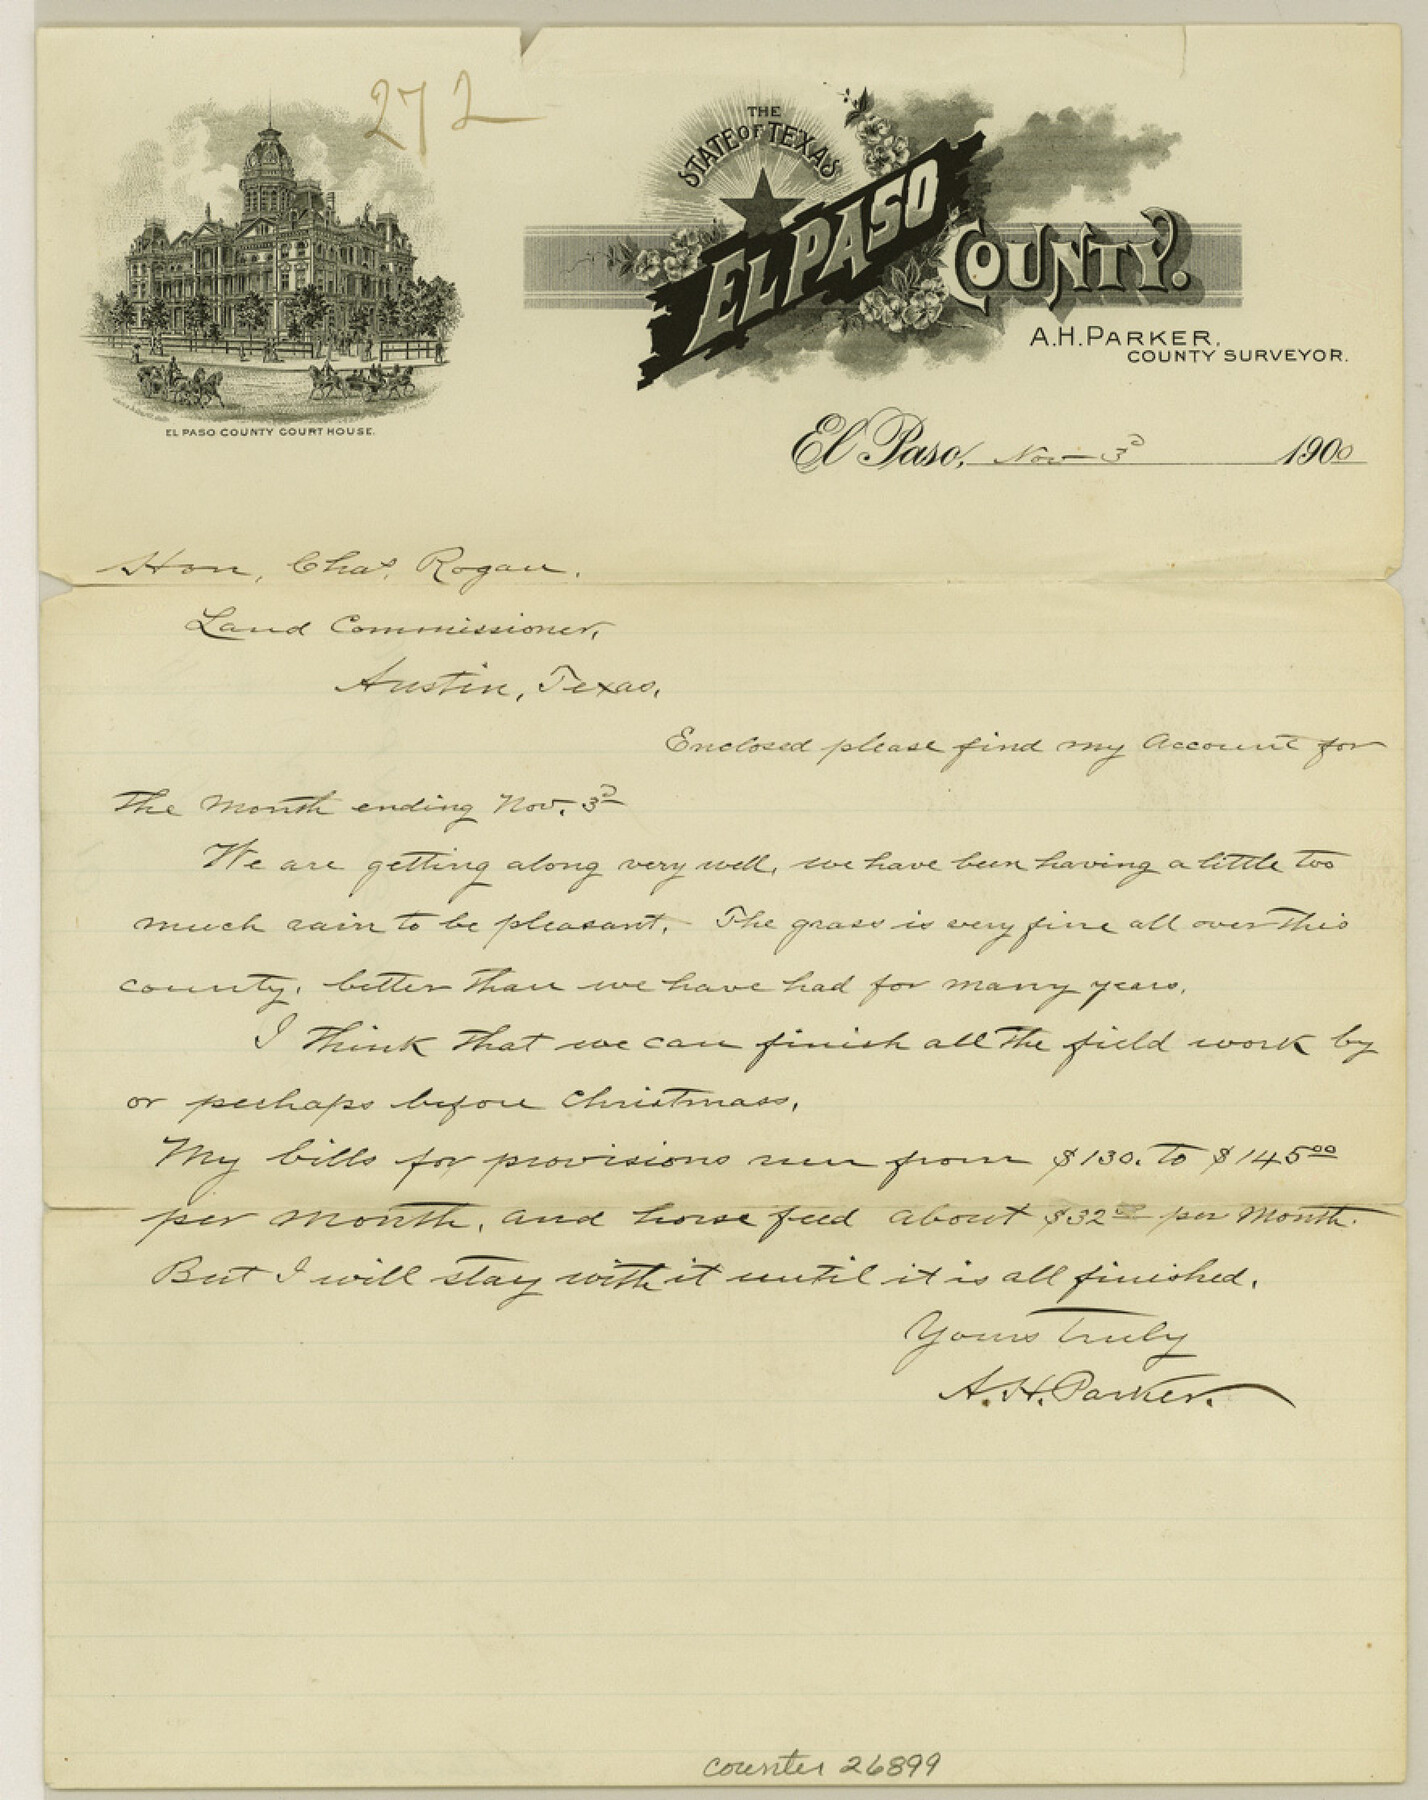 272
THE
STATE OF TEXAS
EL PASO
COUNTY.
A.H. PARKER,
COUNTY SURVEYOR.
EL PASO COUNTY COURT HOUSE.
El Paso, Nov 3ᴰ 1900
Hon. Chas. Rogan.
Land Commissioner,
Austin, Texas.
Enclosed please find my Account for
the Month ending Nov. 3ᴰ
We are getting along very well, we have been having a little too
much rain to be pleasant. The grass is very fine all over this
county, better than we have had for many years.
I think that we can finish all the field work by
or perhaps before Christmass,
My bills for provisions run from $130. to $145⁰⁰
per month, and horse feed about $32⁰⁰ per Month.
But I will stay with it until it is all finished.
Yours Truly
A. H. Parker.
counter 26899